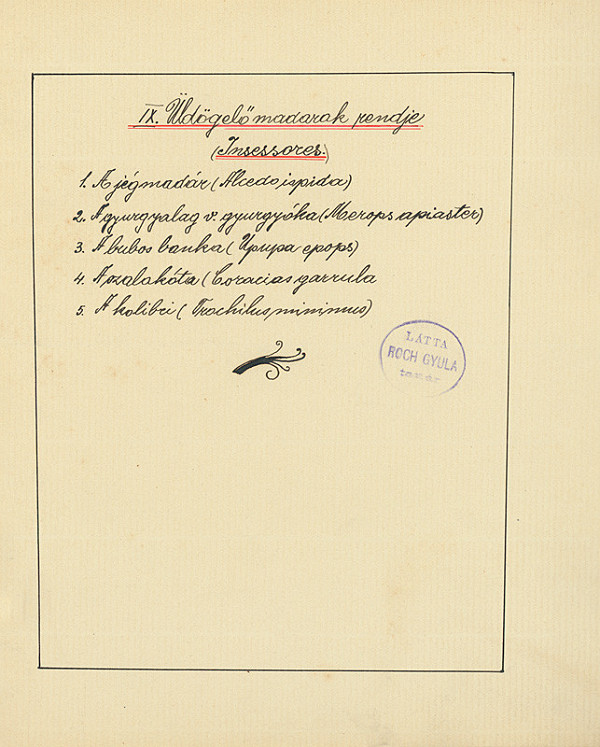 IX. Üldögelő madarak rendje
(Insessores.)
1. A jégmadár (Alcedo ispida)
2. A gyurgyalag v. gyurgyóka (Merops apiaster)
3. A bubos banka (Upupa epops)
4. A szalakóta (Coracias garrula
5. A kolibri (Trochilus minimus)
LÁTTA
ROCH GYULA